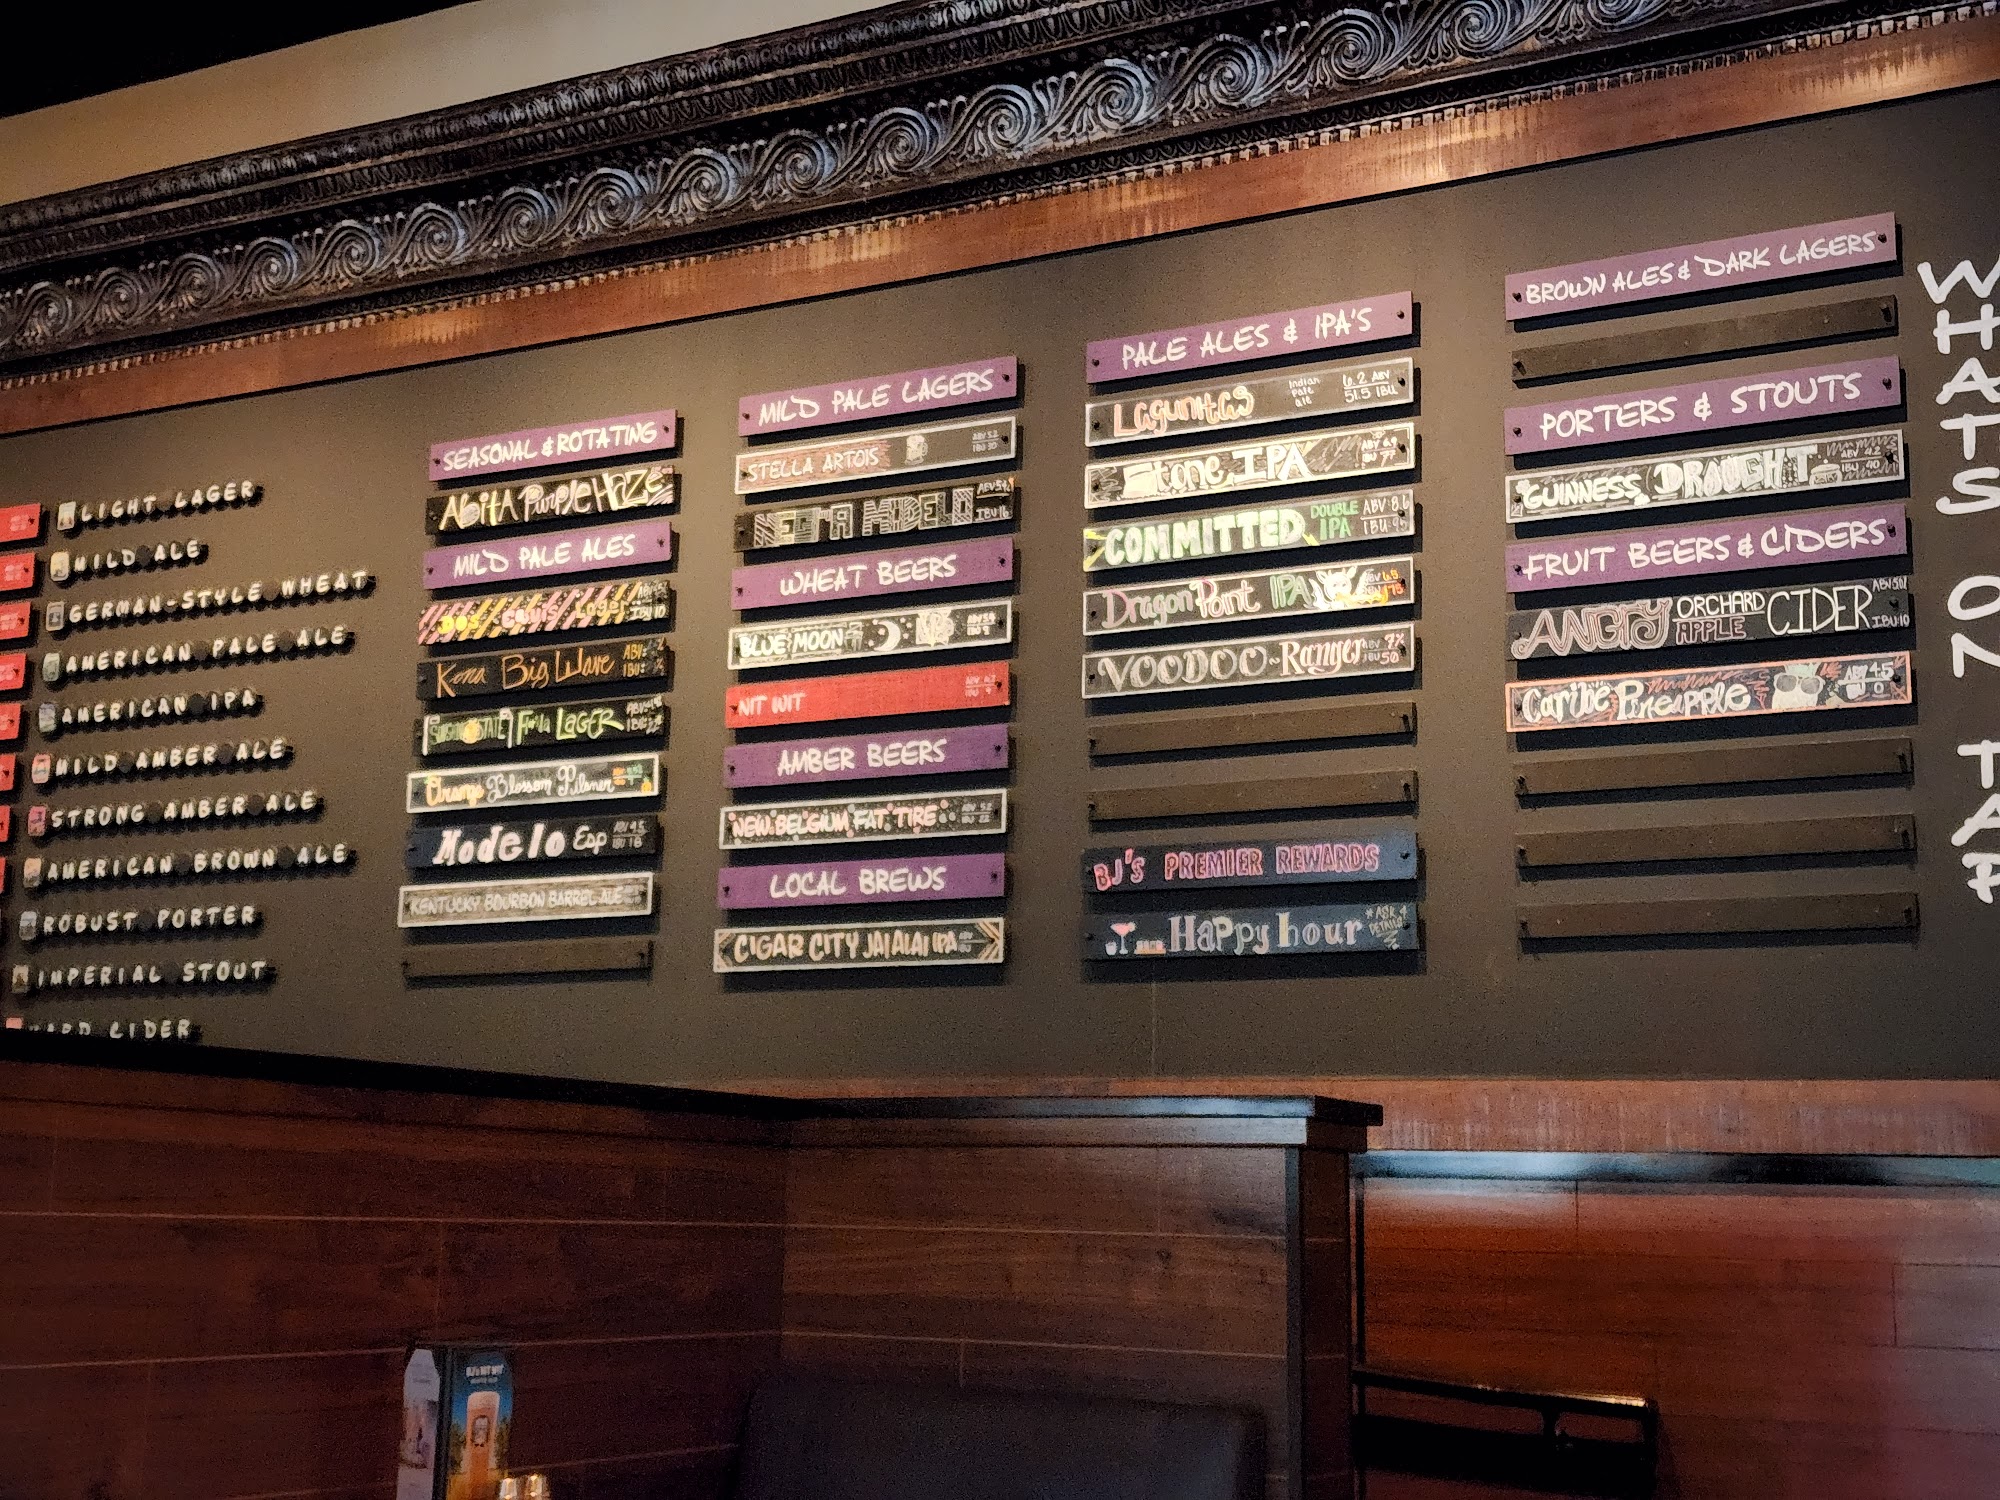 LIGHT LAGER
MILD ALE
GERMAN-STYLE WHEAT
AMERICAN PALE ALE
AMERICAN IPA
MILD AMBER ALE
STRONG AMBER ALE
AMERICAN BROWN ALE
ROBUST PORTER
IMPERIAL STOUT
HARD CIDER
SEASONAL & ROTATING
AbitA Purple HAZE
MILD PALE ALES
Lager IBU 10
Kona Big Wave ABV: IBU:
SUNSHINE STATE LAGER
Orange Blossom Pilsner
Modelo Esp ABV 4.5 IBU 18
KENTUCKY BOURBON BARREL ALE
MILD PALE LAGERS
STELLA ARTOIS ABV 5.2 IBU 30
NEGRA MODELO ABV 5.4 IBU 16
WHEAT BEERS
BLUE MOON
NIT WIT
AMBER BEERS
NEW BELGIUM FAT TIRE ABV 5.2 IBU 22
LOCAL BREWS
CIGAR CITY JAI ALAI IPA
PALE ALES & IPA'S
LagunitaS Indian Pale ale 6.2 ABV 51.5 IBU
Stone IPA ABV 6.9 IBU 77
COMMITTED DOUBLE IPA ABV 8.6 IBU 95
Dragon Point IPA ABV 6.5 IBU 75
VOODOO-Ranger ABV 7% IBU 50
BJ'S PREMIER REWARDS
Happy hour *ASK 4 DETAILS
BROWN ALES & DARK LAGERS
PORTERS & STOUTS
GUINNESS DRAUGHT ABV 4.2 IBU 40
FRUIT BEERS & CIDERS
ANGRY ORCHARD APPLE CIDER ABV 5.0% IBU:10
Caribe Pineapple ABV 4.5 IBU 0
WHATS ON TAP
BJ's NIT WIT